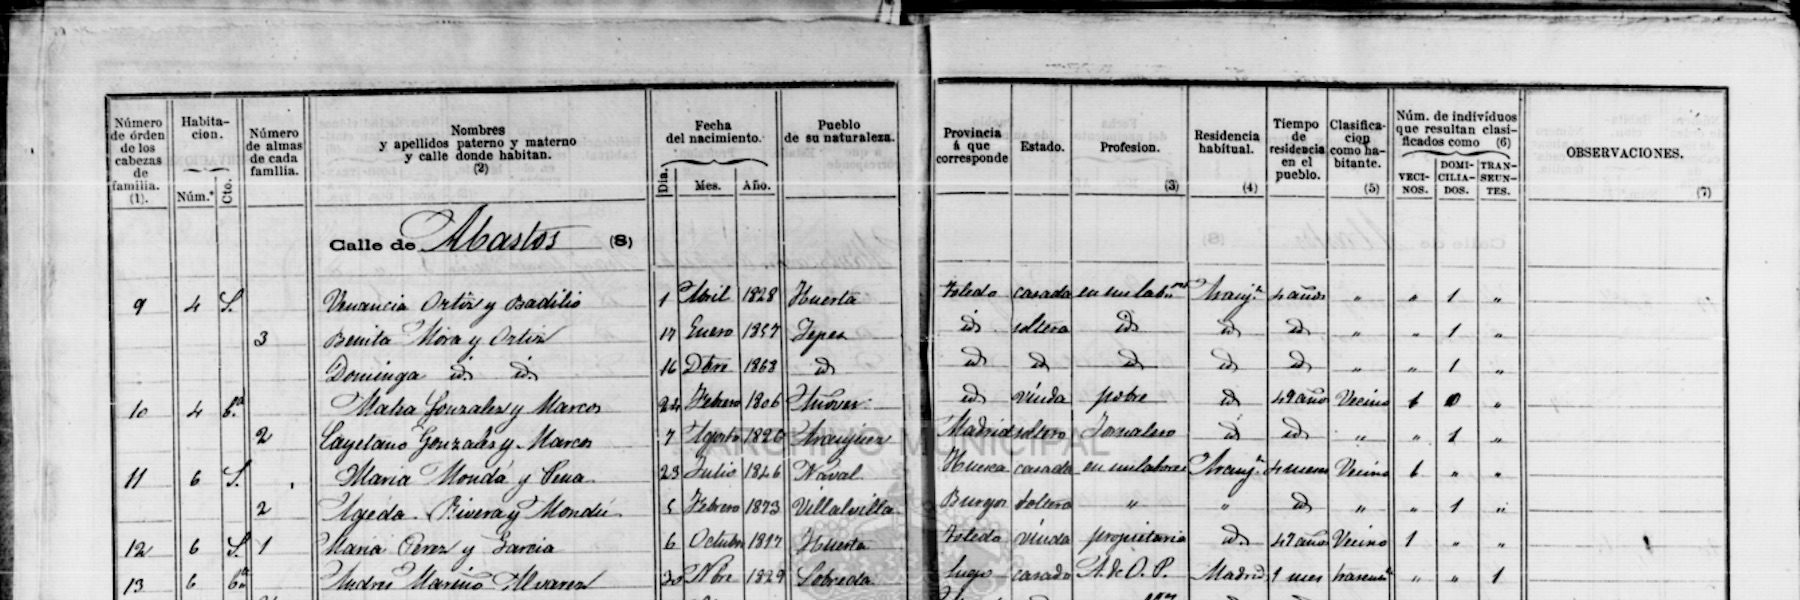 Número de órden de los cabezas de familia. (1).
Habitacion.
Núm.º
Cto.
Número de almas de cada familia.
Nombres y apellidos paterno y materno y calle donde habitan. (2)
Fecha del nacimiento.
Dia. Mes. Año.
Pueblo de su naturaleza.
Provincia á que corresponde
Estado.
Profesion. (3)
Residencia habitual. (4)
Tiempo de residencia en el pueblo.
Clasificacion como habitante. (5)
Núm. de indivíduos que resultan clasificados como (6)
VECINOS. DOMICILIADOS. TRANSEUNTES.
OBSERVACIONES. (7)
Calle de Abastos (8)
9 4 S. Venancia Ortiz y Badillo 1 Abril 1828 Huerta Toledo casada en sus lab.res Aranj.z 4 años " " 1 "
3 Benita Mora y Ortiz 17 Enero 1857 Yepes id soltera id id id " " 1 "
Dominga id. id. 16 Dbre 1868 id id id id id id " " 1 "
10 4 Gonzalez y Marcos 24 Febrero 1806 id viuda pobre id 49 años Vecino 1 0 "
2 Cayetano Gonzalez y Marcos 7 Agosto 1826 Aranjuez Madrid soltero Jornalero id id " " 1 "
11 6 S. Maria Mondá y Pena 23 Julio 1846 Naval Huesca casada en sus labores Aranj.z 4 meses Vecino 1 " "
2 Agueda Rivera y Mondá 5 Febrero 1873 Villalvilla Burgos soltera " " id " " 1 "
12 6 S. 1 Maria Perez y Garcia 6 Octubre 1817 Huerta Toledo viuda propietaria id. 47 años Vecino 1 " "
13 6 Andres Mariño Alvarez 30 Nbre 1829 Lobreda Lugo casado A. de O. P. Madrid 1 mes " " 1
ARCHIVO MUNICIPAL